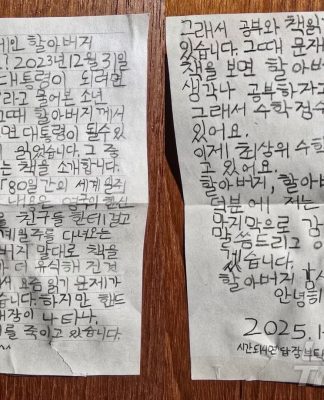 할아버지
2023년12월 31일
대통령이 되려면
라고 물어본 소년
할아버지께서
면 대통령이 될수있
읽었습니다. 그 중
책을 소개합니다.
80일간의 세계 일주
친구들 한테 걸고
세계일주를 다녀오는
버지 말대로 책을
더 유식해 진걸
요즘 읽기 문제가
습니다. 하지만 핸드
대장이 나타나.
를 죽이고 있습니다.
그래서 공부와 책읽
있습니다. 그때 문자
책을 보면 할아버
생각나 공부하자고
그래서 수학 점수
있어요.
이제 최상위 수학
고 있어요.
할아버지, 할아버
덕분에 저는
마지막으로 감
말씀드리고
겠습니다.
할아버지
안녕히
2025.1
시간되시면 답장 부터